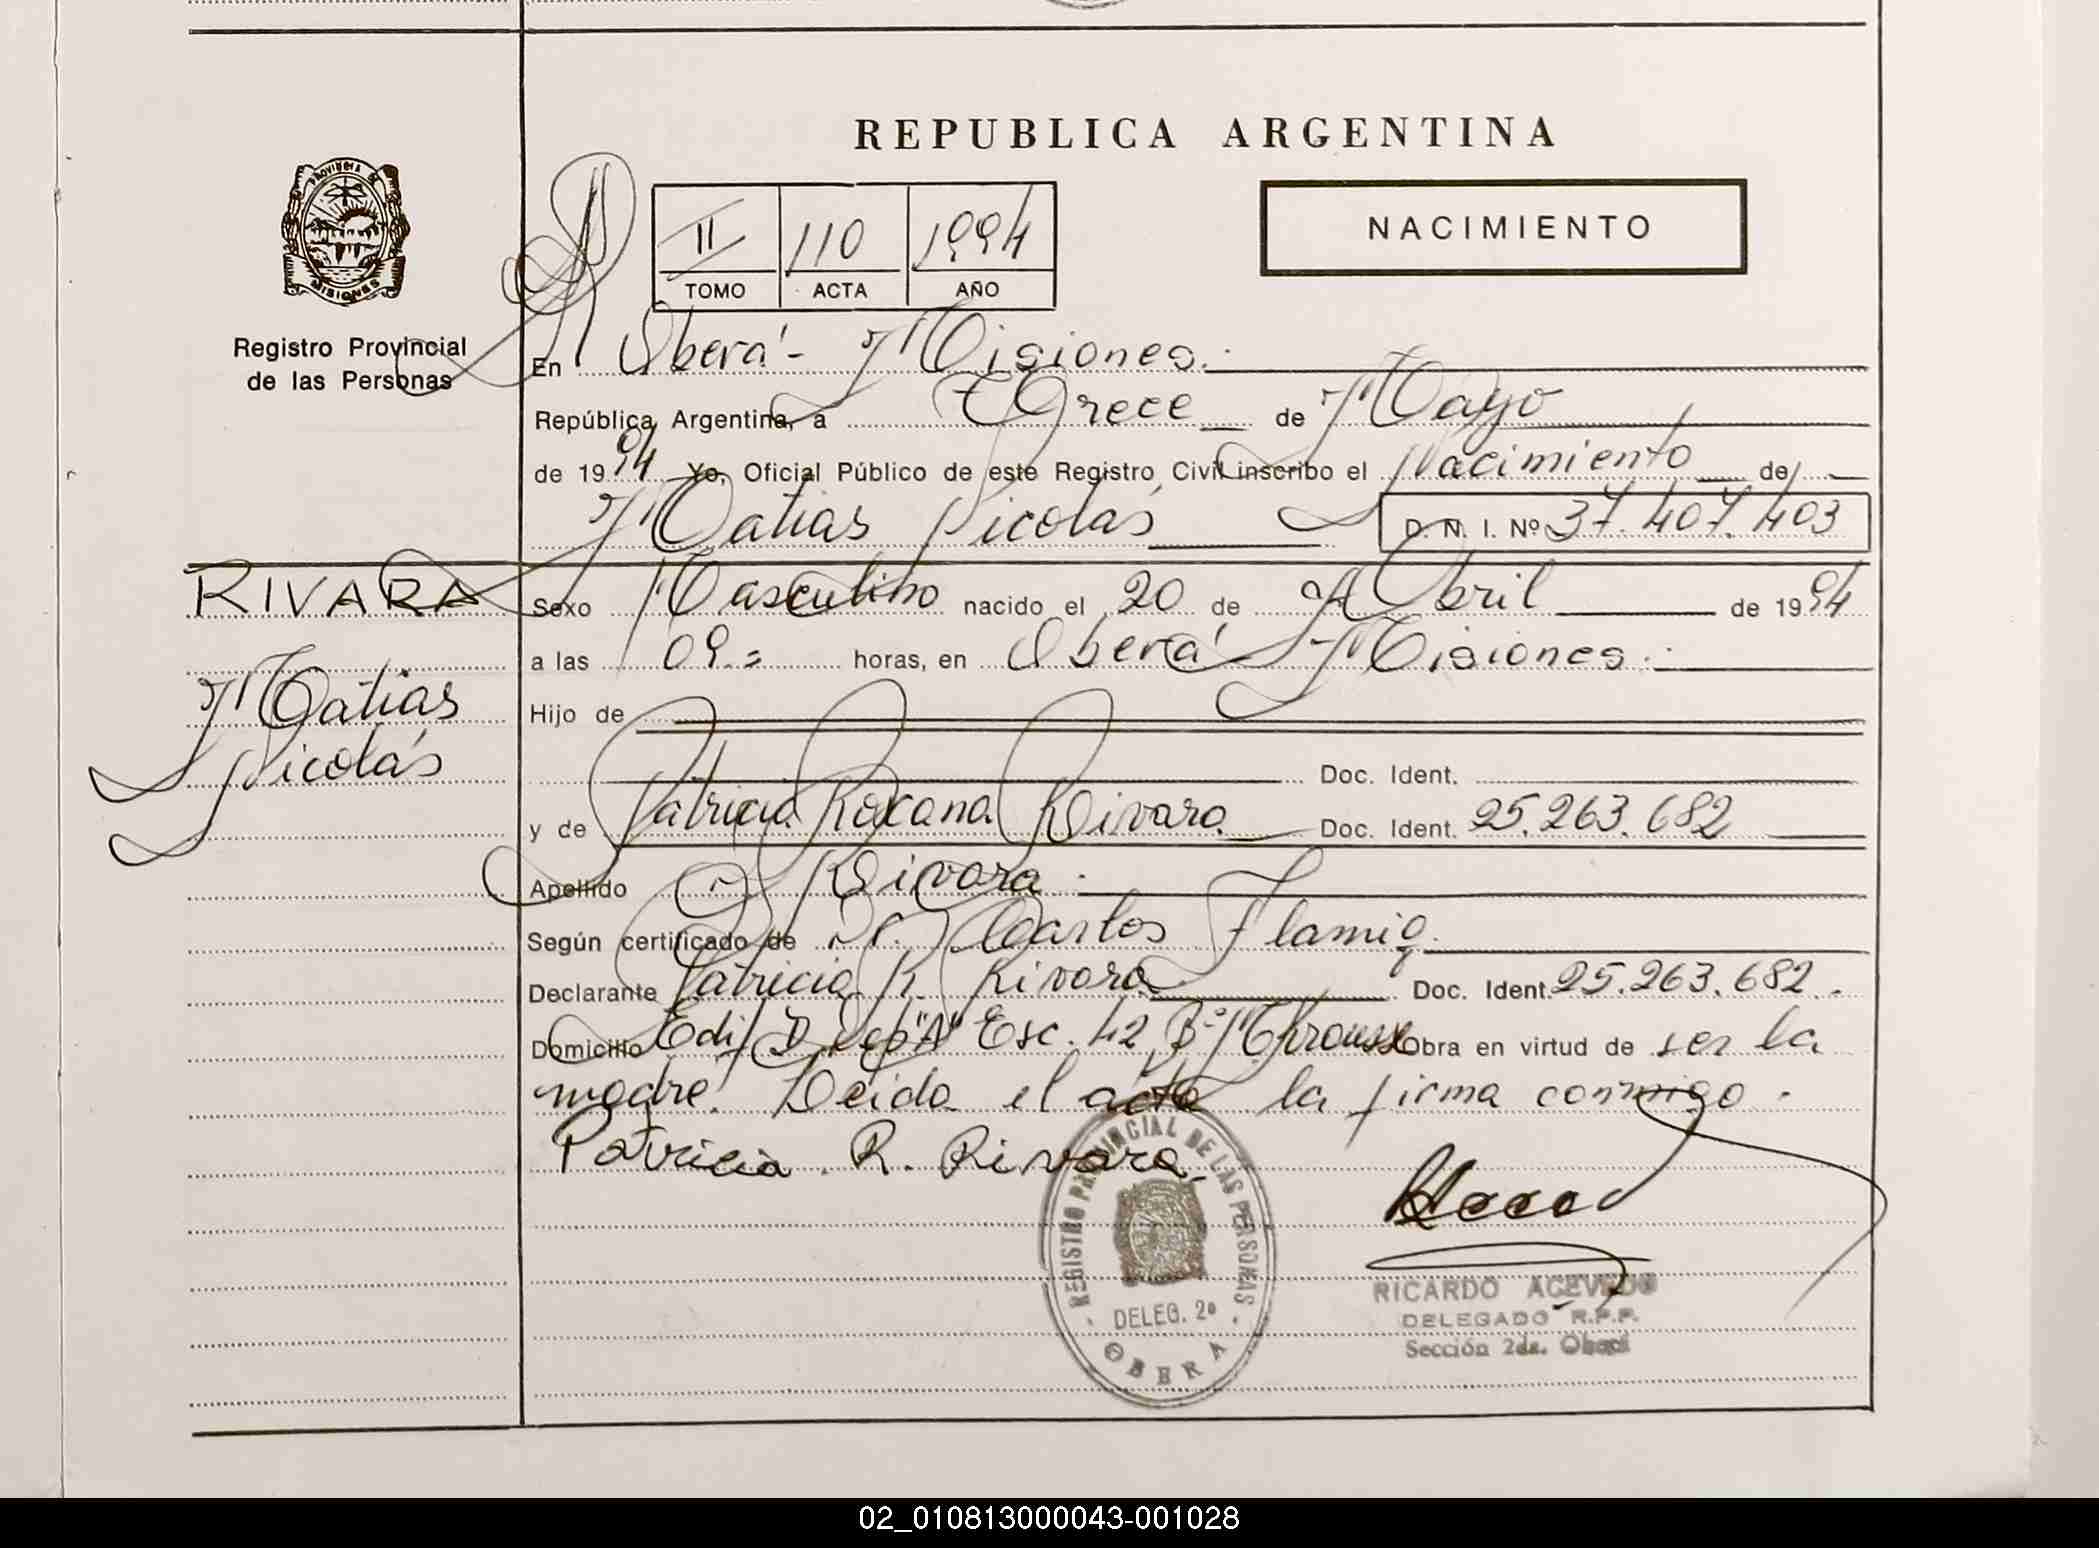 REPUBLICA ARGENTINA
PROVINCIA DE
MISIONES
Registro Provincial
de las Personas
II 110 1994
TOMO ACTA AÑO
NACIMIENTO
En Oberá - Misiones.
República Argentina, a Trece de Mayo
de 1994 Yo, Oficial Público de este Registro Civil inscribo el Nacimiento de
Matias Nicolás D. N. I. Nº 37.407.403
RIVARA
Matias
Nicolás
Sexo Masculino nacido el 20 de Abril de 1994
a las 09.= horas, en Oberá Misiones.
Hijo de
Doc. Ident.
y de Patricia Roxana Rivara Doc. Ident. 25.263.682
Apellido Rivara.
Según certificado de Dr. Carlos Flamig.
Declarante Patricia R. Rivara Doc. Ident. 25.263.682.
Domicilio Edif D Dep "A" Esc. 42 Bº Obra en virtud de ser la
madre. Leída el acta la firma conmigo.
Patricia R. Rivara
REGISTRO PROVINCIAL DE LAS PERSONAS
DELEG. 2º
OBERA
RICARDO ACEVEDO
DELEGADO R.P.P.
Sección 2da. Oberá
02_010813000043-001028